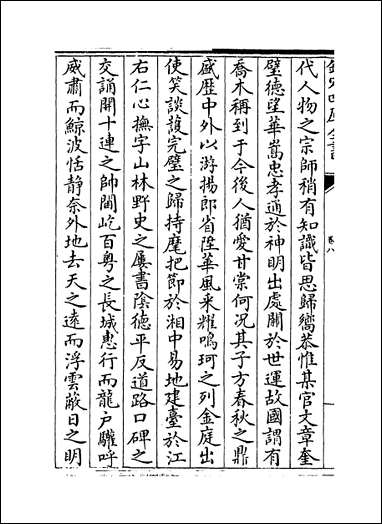 欽定四庫全書
卷八
代人物之宗師稍有知識皆思歸嚮恭惟某官文章奎
璧德望華嵩忠孝通於神明出處關於世運故國謂有
喬木稱到于今後人猶愛甘棠何况其子方春秋之鼎
盛歴中外以游揚郎省陞華風采耀鳴珂之列金庭出
使笑談護完璧之歸持麾把節於湘中易地建臺於江
右仁心撫字山林野史之屢書陰德平反道路口碑之
交誦開十連之帥閫屹百粤之長城惠行而龍户驩呼
威肅而鯨波恬静奈外地去天之遠而浮雲蔽日之明